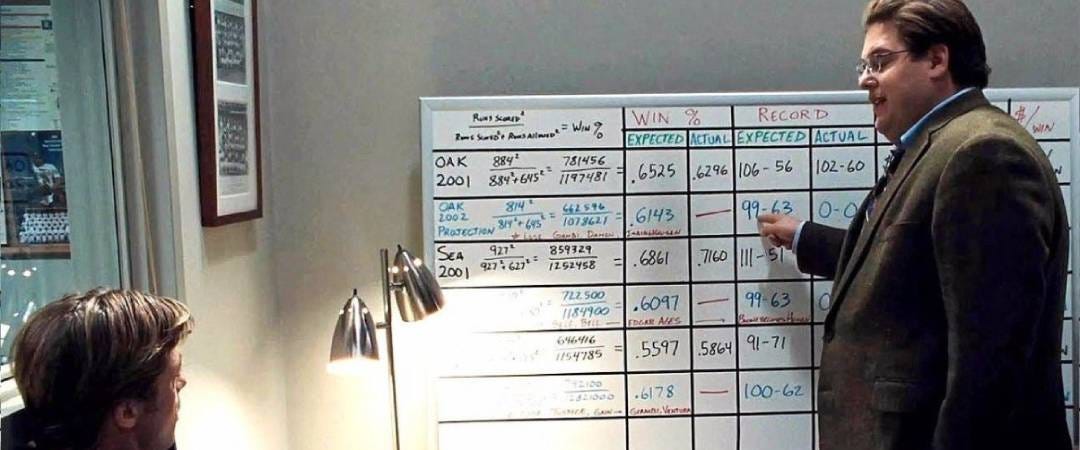 Runs Scored²
Runs Scored² + Runs Allowed² = Win %
WIN %
RECORD
$/WIN
EXPECTED ACTUAL EXPECTED ACTUAL
OAK 2001 884² / 884² + 645² = 781456 / 1197481 = .6525 .6296 106-56 102-60
OAK 2002 PROJECTION 814² / 814² + 645² = 662596 / 1078621 = .6143 — 99-63 0-0
* Lose Giambi, Damon,
SEA 2001 927² / 927² + 627² = 859329 / 1252458 = .6861 .7160 111-51
722500 / 1184900 = .6097 — 99-63 0
Sele, Bell — Edgar Ages
646416 / 1154785 = .5597 .5864 91-71
= .6178 — 100-62
Giambi, Ventura